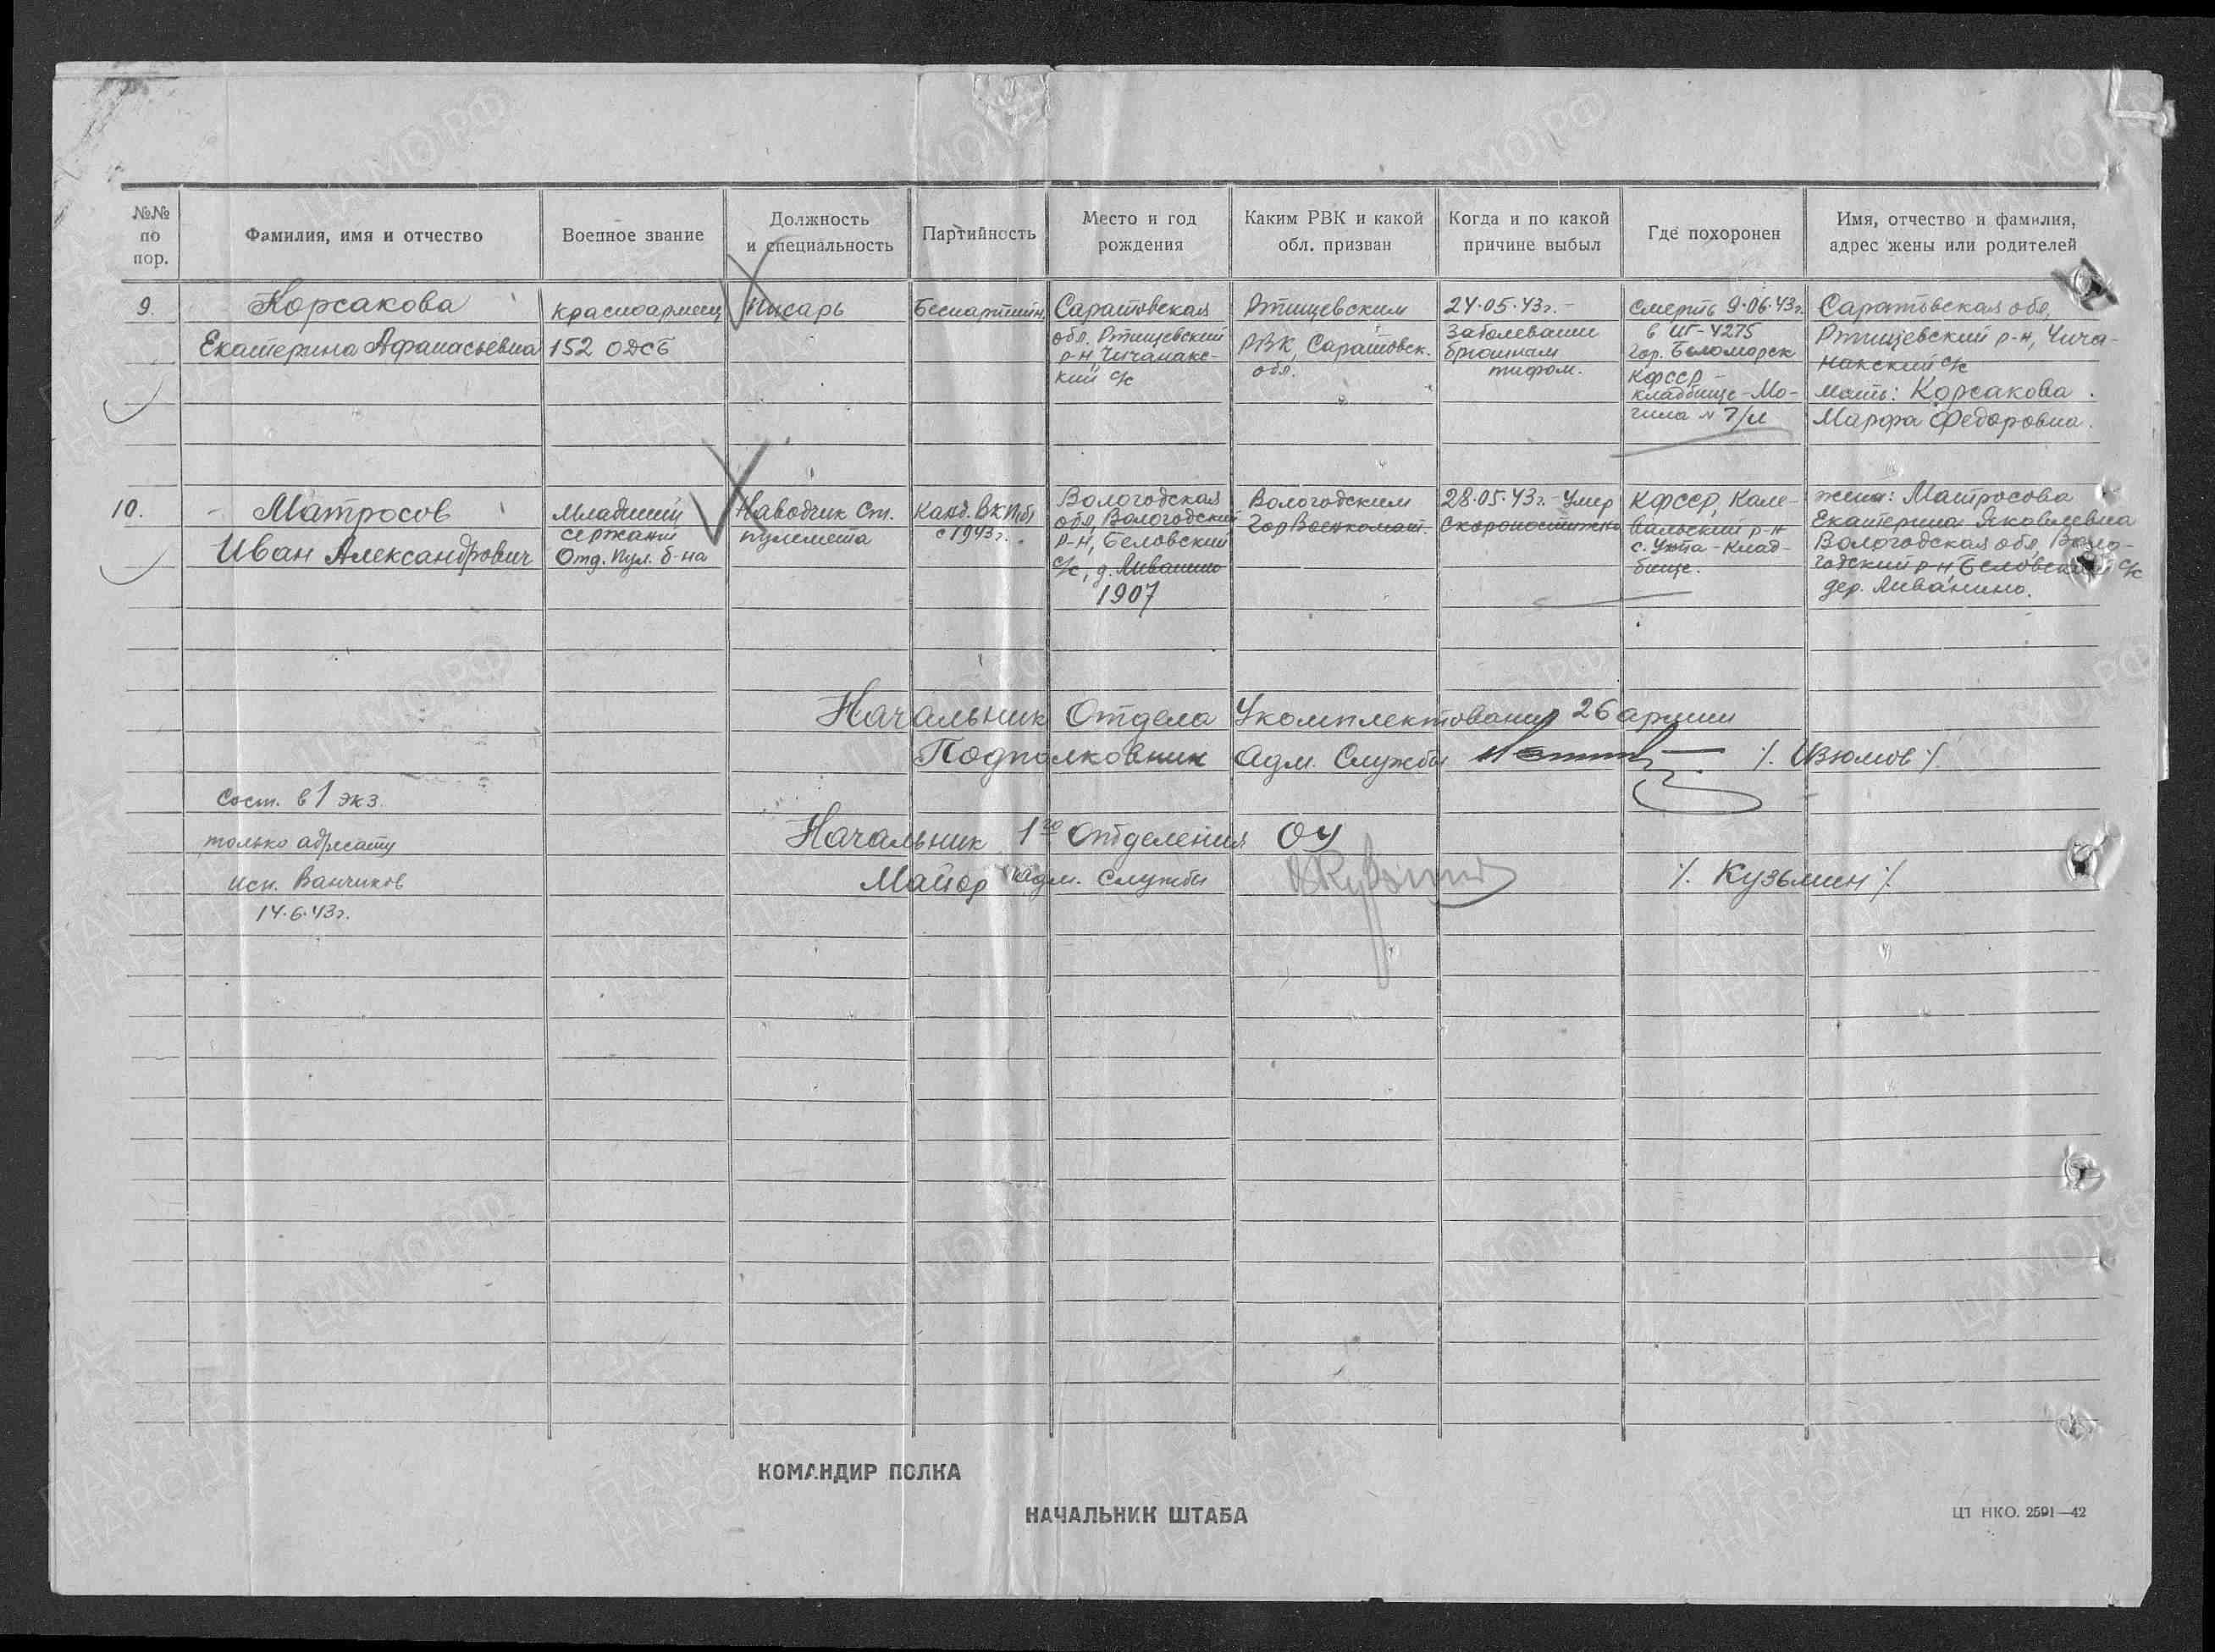 №№ по пор.
Фамилия, имя и отчество
Военное звание
Должность и специальность
Партийность
Место и год рождения
Каким РВК и какой обл. призван
Когда и по какой причине выбыл
Где похоронен
Имя, отчество и фамилия, адрес жены или родителей
9.
Корсакова
Екатерина Афанасьевна
Красноармеец
152 ОДСБ
Писарь
Беспартийн.
Саратовская
обл. Ртищевский
р-н Чичанакс-
кий с/с
Ртищевским
РВК, Саратовск.
обл.
24.05.43г. -
Заболевании
брюшным
тифом.
Смерть 9.06.43г.
в ИГ-4275
гор. Беломорск
КФССР -
кладбище - Мо-
гила № 7/И
Саратовская обл.
Ртищевский р-н, Чича-
накский с/с
Мать: Корсакова
Марфа Федоровна.
10.
Матросов
Иван Александрович
Младший
сержант
Отд. пул. б-на
Наводчик Ст.
пулемета
Канд. ВКП(б)
с 1943г.
Вологодская
обл, Вологодский
р-н, Беловский
с/с, д. Ливанино
1907
Вологодским
ГорВоенкомат.
28.05.43г. - Умер
скоропостижно
КФССР, Кале-
вальский р-н
с. Ухта - Клад-
бище.
жена: Матросова
Екатерина Яковлевна
Вологодская обл, Воло-
годский р-н, Беловский с/с
дер. Ливанино.
Начальник Отдела Укомплектования 26 армии
Подполковник Адм. Службы /. Изюмов /.
Сост. в 1 экз.
только адресату
исп. Ванчиков
14.6.43г.
Начальник 1го Отделения ОУ
Майор Адм. Службы /. Кузьмин /.
КОМАНДИР ПОЛКА
НАЧАЛЬНИК ШТАБА
ЦТ НКО. 2591—42
ЦАМО.РФ
ПАМЯТЬ НАРОДА